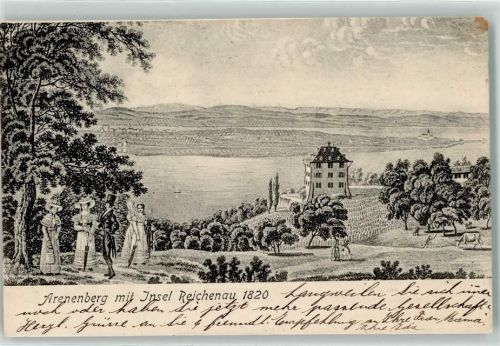 Arenenberg mit Insel Reichenau 1820
Langweilen Sie sich immer
noch oder haben Sie jetzt mehr passende Gesellschaft?
Herzl. Grüsse an Sie & freundl. Empfehlung an Ihre Frau Mama.
Ihre Ida